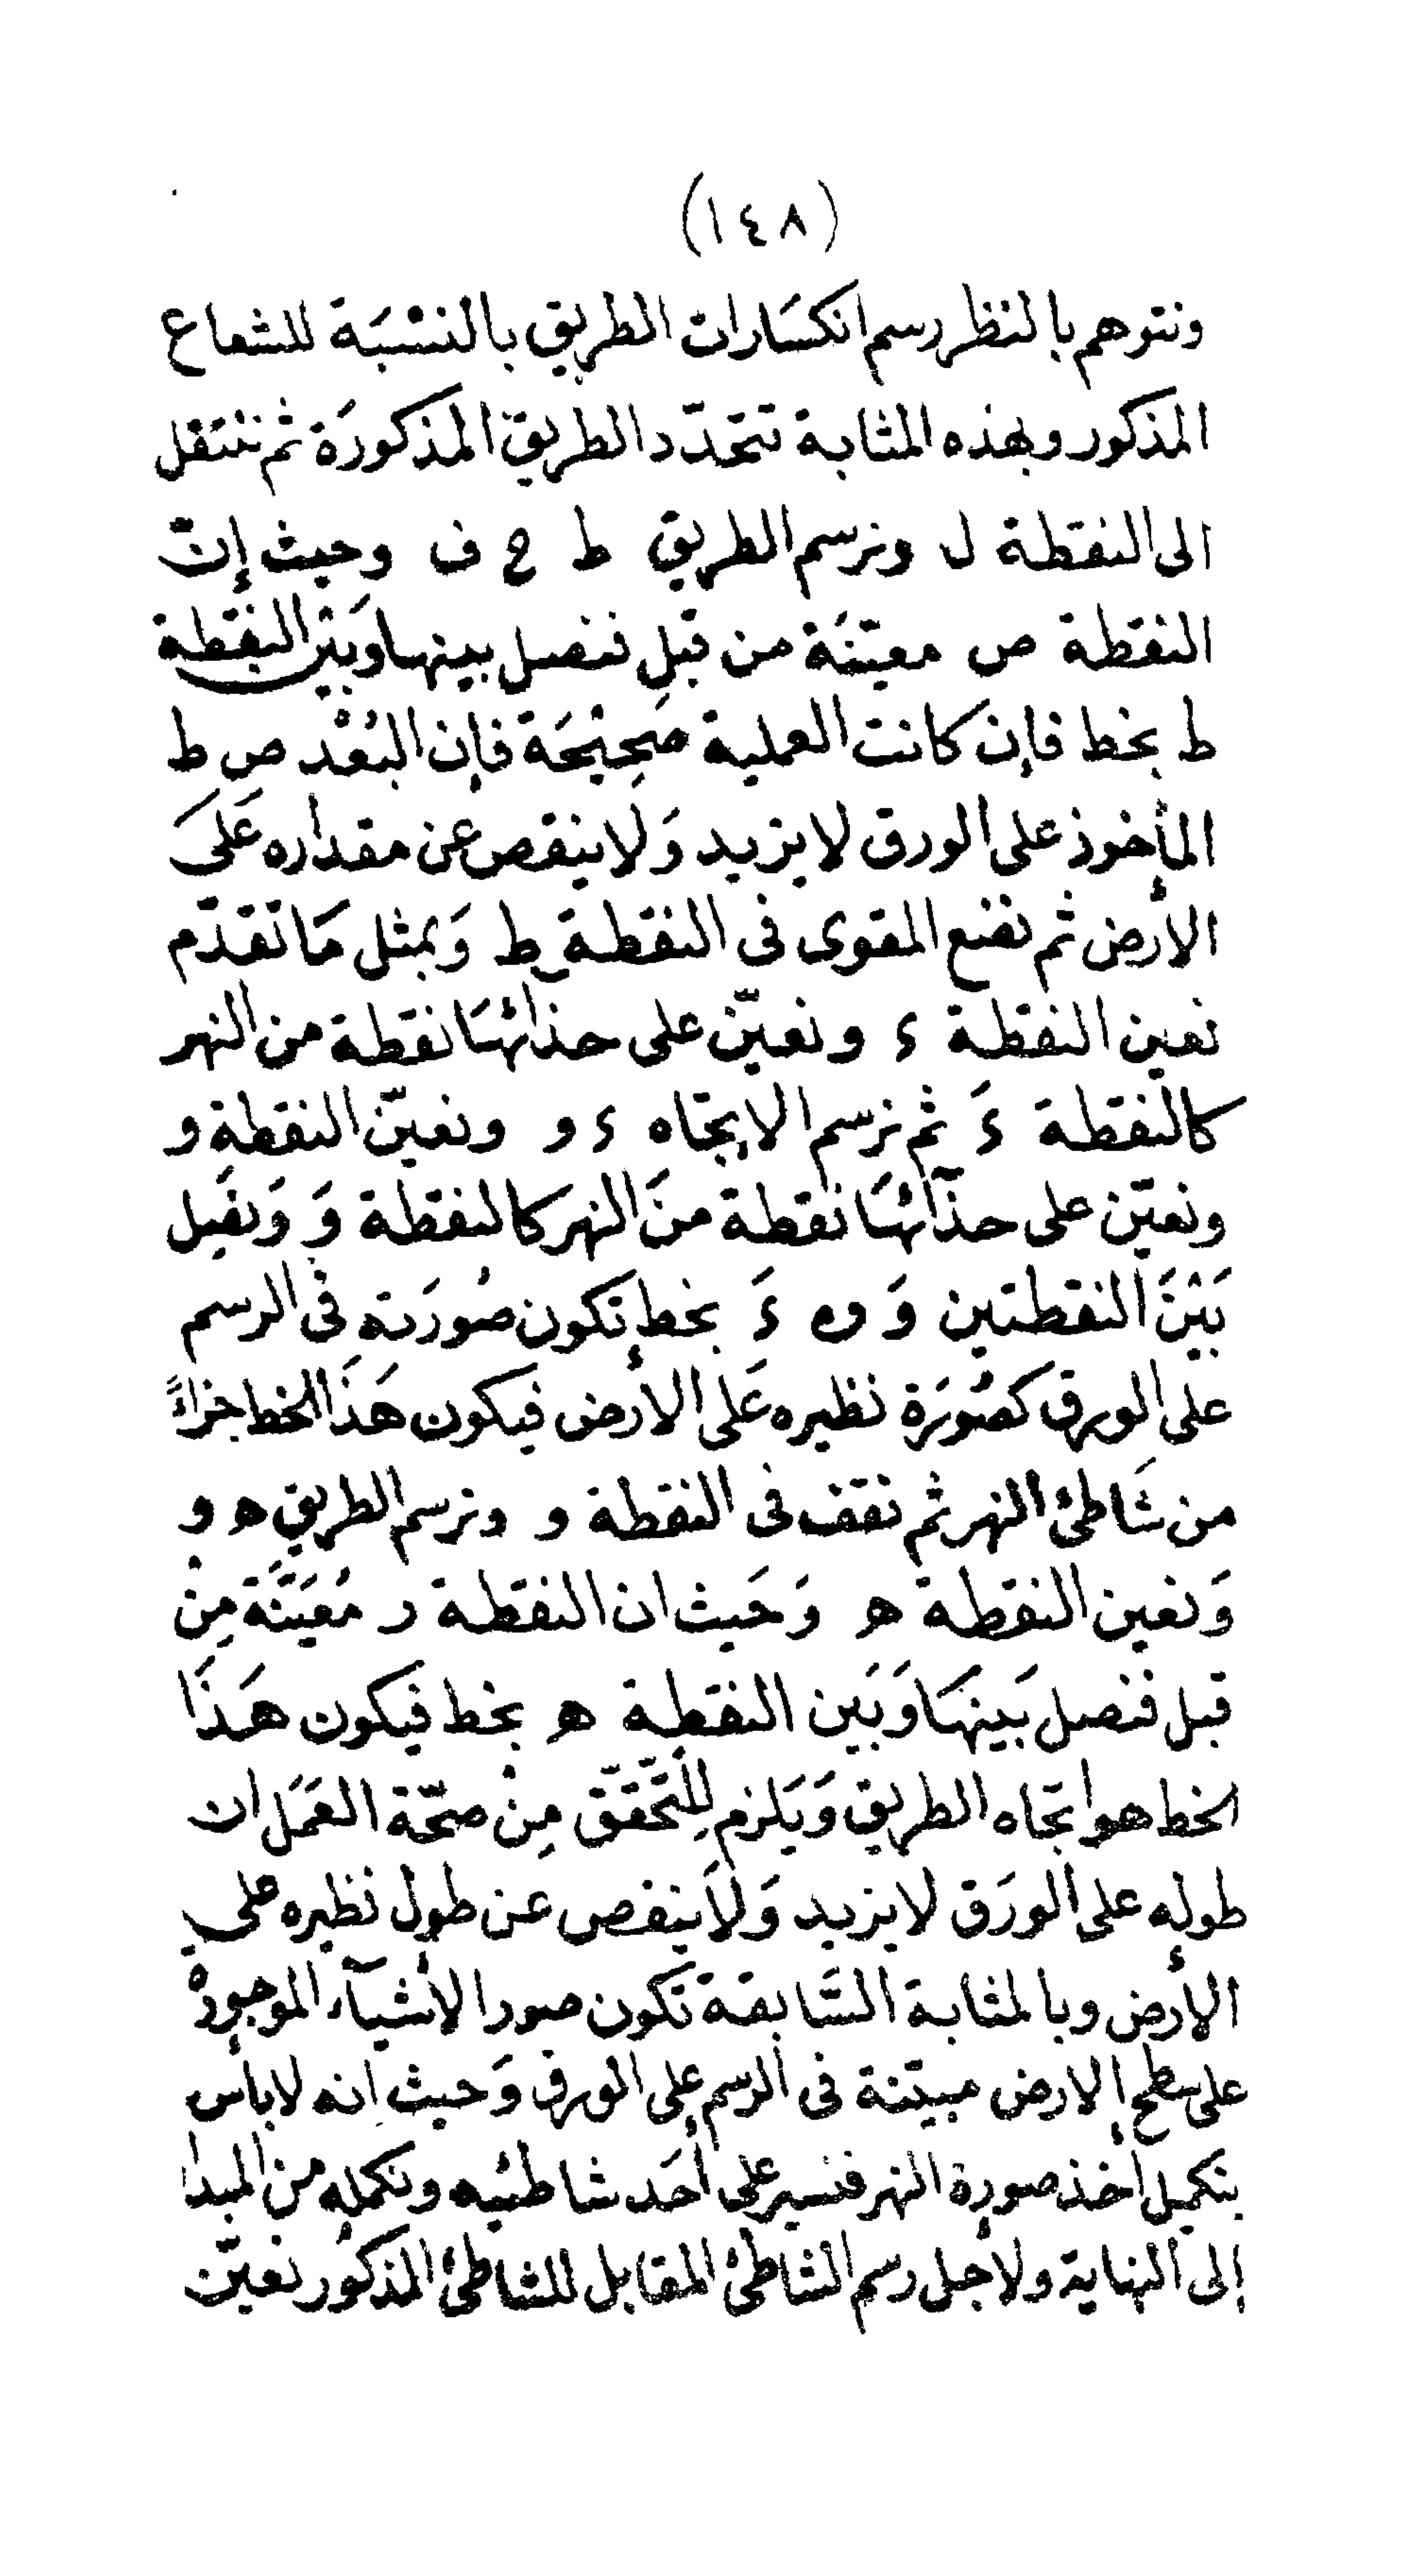 (١٤٨)
ونتوهم بالنظر رسم انكسَارات الطريق بالنسْبَة للشعاع
المذكور وبهذه المثابة تتحدّد الطريق المذكورَة ثم ننتقل
الى النقطة ل ونرسم الطريق ط ح ف وحيث إنّ
النقطة ص معيّنَة من قبل فنصل بينها وَبَيْن النقطة
ط بخط فإن كانت العملية صَحِيْحَة فإن البُعْد ص ط
المأخوذ على الورق لا يزيد وَلا ينقص عن مقداره عَلىَ
الأرض ثم نضع المقوى فى النقطة ط وَبمثل مَا تقدّم
نعين النقطة ء ونعيّن على حذائهَا نقطة من النهر
كالنقطة ءَ ثم نرسم الاتجاه ء و ونعيّن النقطة و
ونعيّن على حذآئهَا نقطة منَ النهر كالنقطة وَ وَنصِل
بَيْنَ النقطتين وَ و ءَ بخط تكون صُورَته فى الرسم
على الورق كصُورَة نظيره عَلى الأرض فيكون هَذَا الخط جزاءً
من شَاطئ النهر ثم نقف فى النقطة و ونرسم الطريق ه و
وَنعين النقطة ه وَحَيث ان النقطة ر مُعَيَّنَة مِنْ
قبل فنصل بَينهَا وَبَين النقطة ه بخط فيكون هَذَا
الخط هو اتجاه الطريق وَيَلزم لِلتَّحَقّق مِنْ صحّة العَمَل ان
طوله على الورَق لا يزيد وَلاَ ينقص عن طول نظيره على
الأرض وبالمثابة السَّابقة تكون صور الأشيآء الموجودة
على سطح الارض مبيّنة فى الرسم على الورق وَحيث انه لا بأس
بتكميل أخذ صورة النهر فنسير على أحَد شاطئيه ونكمله من المبدا
إلى النهاية ولأجل رسم الشاطئ المقابل للشاطئ المذكور نعيّن